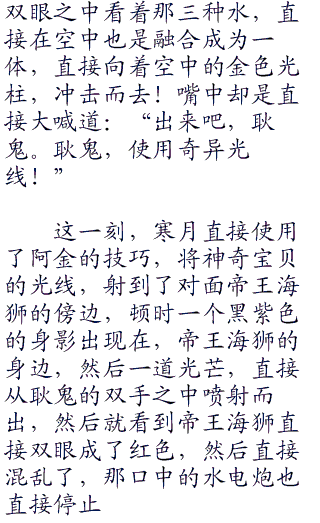 双眼之中看着那三种水，直
接在空中也是融合成为一
体，直接向着空中的金色光
柱，冲击而去！嘴中却是直
接大喊道：“出来吧，耿
鬼。耿鬼，使用奇异光
线！”
这一刻，寒月直接使用
了阿金的技巧，将神奇宝贝
的光线，射到了对面帝王海
狮的傍边，顿时一个黑紫色
的身影出现在，帝王海狮的
身边，然后一道光芒，直接
从耿鬼的双手之中喷射而
出，然后就看到帝王海狮直
接双眼成了红色，然后直接
混乱了，那口中的水电炮也
直接停止